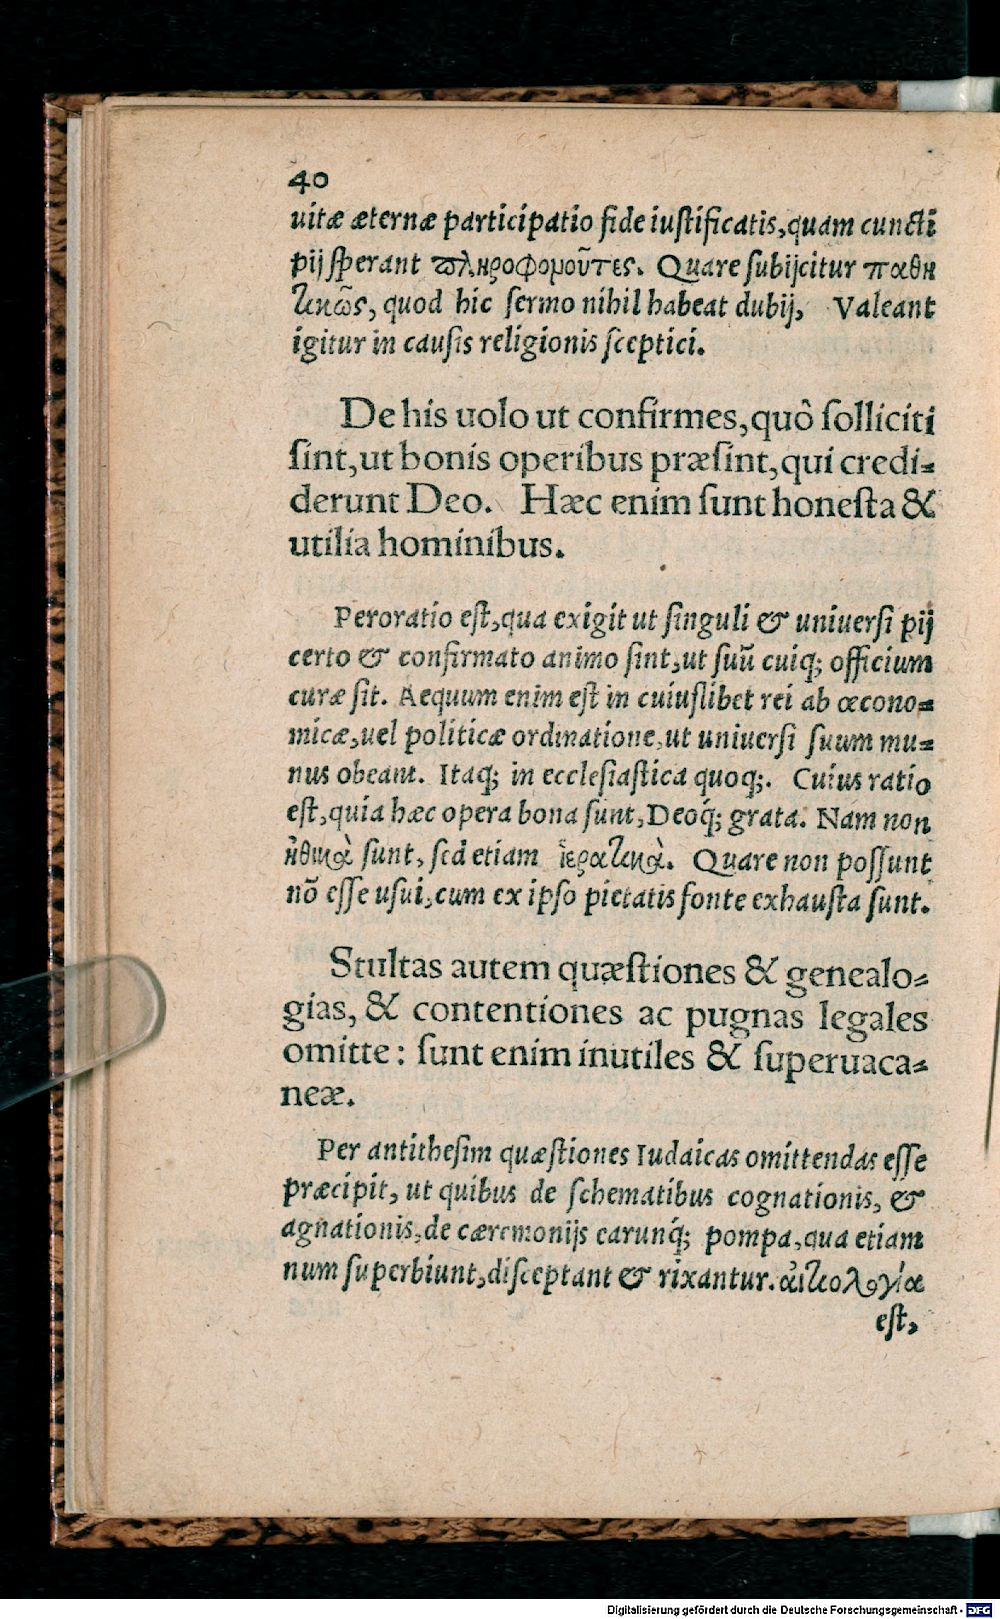 40
uitæ æternæ participatio fide iustificatis, quam cunctī
pij sperant πληροφορμοῦτες. Quare subijcitur παθη
τικῶς, quod hic sermo nihil habeat dubij, Valeant
igitur in causis religionis sceptici.
De his uolo ut confirmes, quô solliciti
sint, ut bonis operibus præsint, qui credi-
derunt Deo. Hæc enim sunt honesta &
utilia hominibus.
Peroratio est, qua exigit ut singuli & uniuersi pij
certo & confirmato animo sint, ut suū cuiq; officium
curæ sit. Aequum enim est in cuiuslibet rei ab œcono-
micæ, uel politicæ ordinatione, ut uniuersi suum mu-
nus obeant. Itaq; in ecclesiastica quoq;. Cuius ratio
est, quia hæc opera bona sunt, Deoq́; grata. Nam non
ἠθικὰ sunt, sed etiam ἱερατικὰ. Quare non possunt
nō esse usui, cum ex ipso pietatis fonte exhausta sunt.
Stultas autem quæstiones & genealo-
gias, & contentiones ac pugnas legales
omitte: sunt enim inutiles & superuaca-
neæ.
Per antithesim quæstiones Iudaicas omittendas esse
præcipit, ut quibus de schematibus cognationis, &
agnationis, de cæremonijs earunq́; pompa, qua etiam
num superbiunt, disceptant & rixantur. ἀιτιολογία
est,
Digitalisierung gefördert durch die Deutsche Forschungsgemeinschaft - DFG